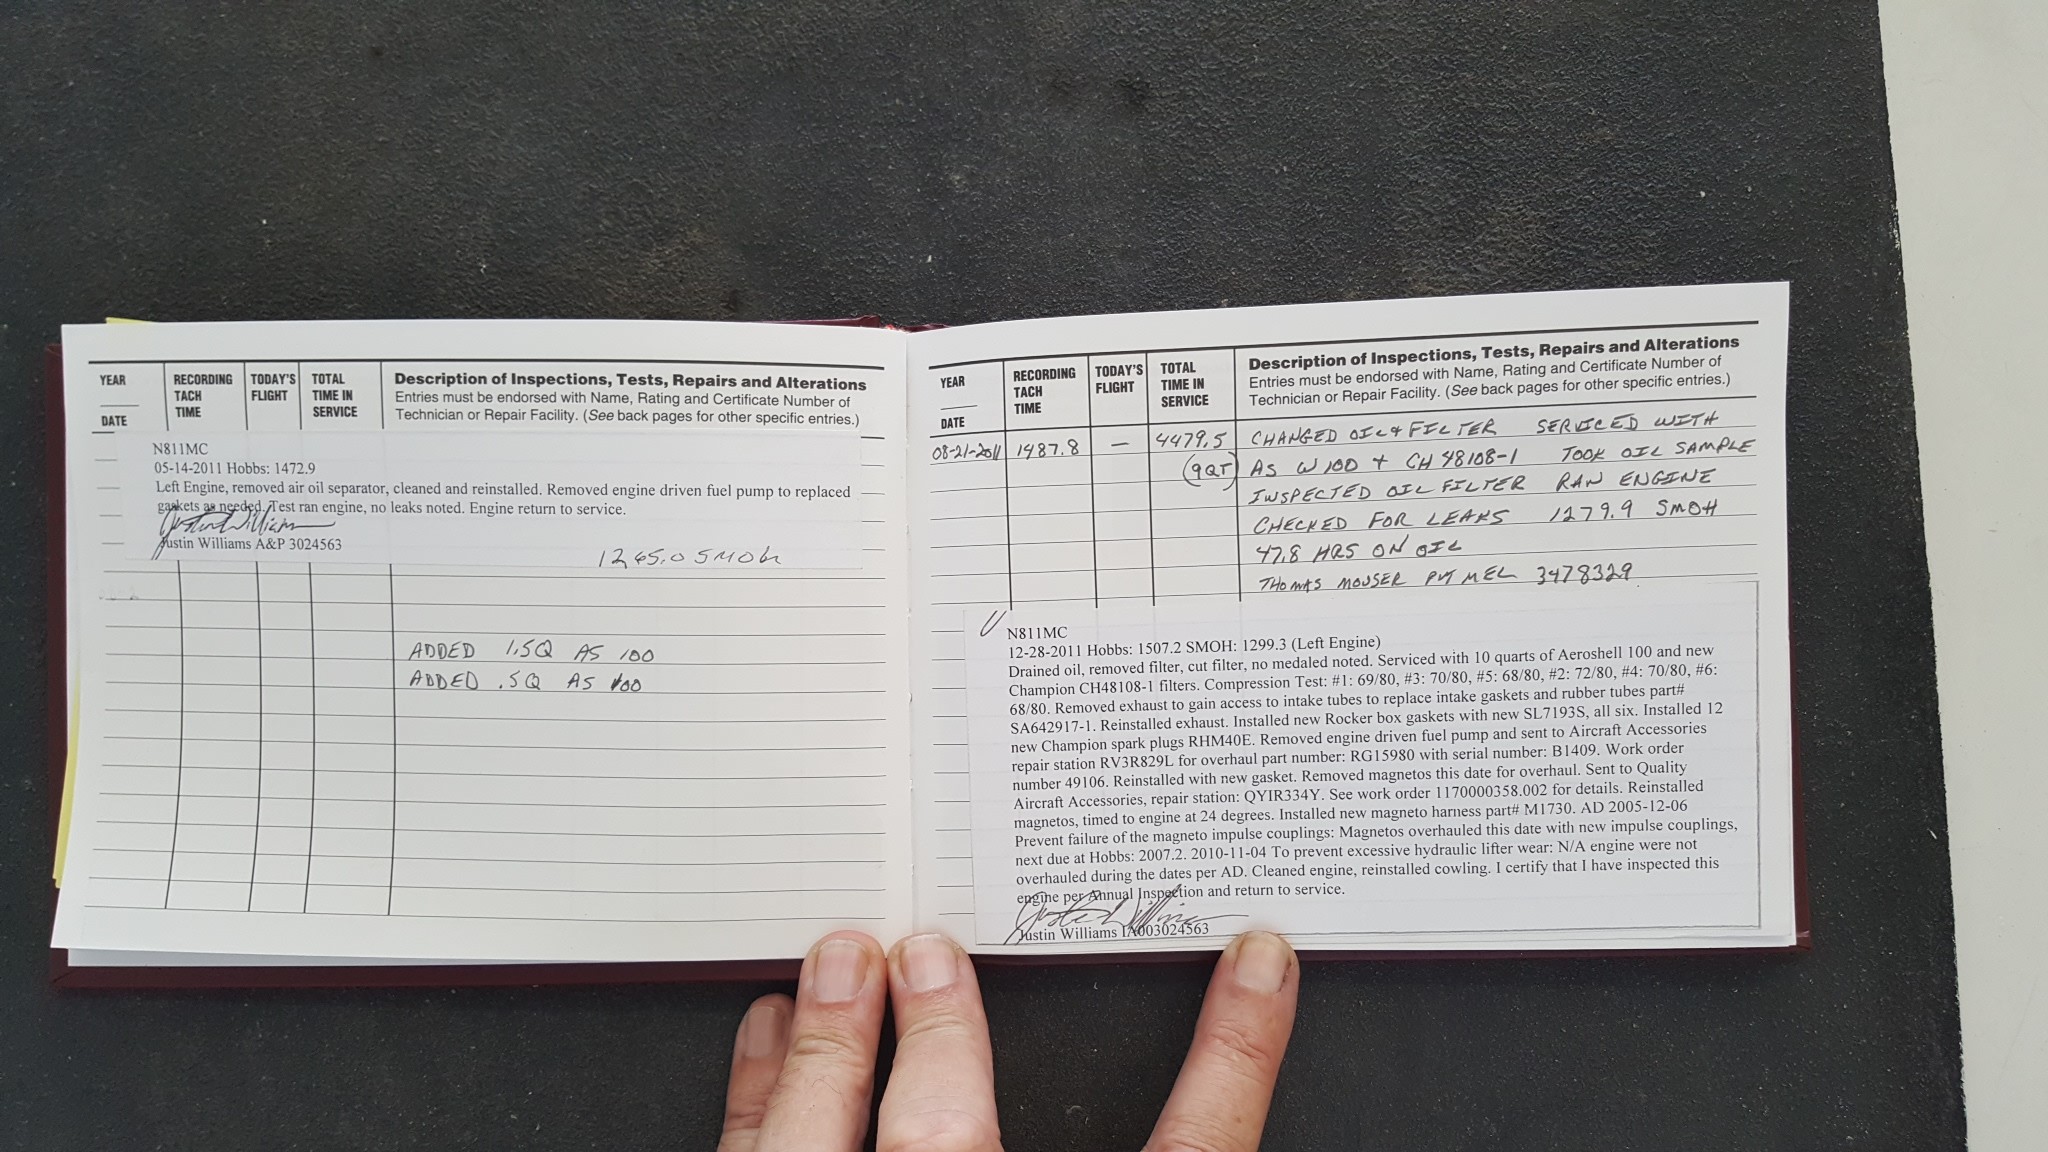 YEAR
DATE
RECORDING
TACH
TIME
TODAY'S
FLIGHT
TOTAL
TIME IN
SERVICE
Description of Inspections, Tests, Repairs and Alterations
Entries must be endorsed with Name, Rating and Certificate Number of
Technician or Repair Facility. (See back pages for other specific entries.)
N811MC
05-14-2011 Hobbs: 1472.9
Left Engine, removed air oil separator, cleaned and reinstalled. Removed engine driven fuel pump to replaced
gaskets as needed. Test ran engine, no leaks noted. Engine return to service.
Justin Williams
Justin Williams A&P 3024563
1265.0 SMOH
ADDED 1.5Q AS 100
ADDED .5Q AS 100
YEAR
DATE
RECORDING
TACH
TIME
TODAY'S
FLIGHT
TOTAL
TIME IN
SERVICE
Description of Inspections, Tests, Repairs and Alterations
Entries must be endorsed with Name, Rating and Certificate Number of
Technician or Repair Facility. (See back pages for other specific entries.)
08-21-2011 1487.8 — 4479.5 CHANGED OIL & FILTER SERVICED WITH
(9QT) AS W100 + CH 48108-1 TOOK OIL SAMPLE
INSPECTED OIL FILTER RAN ENGINE
CHECKED FOR LEAKS 1279.9 SMOH
47.8 HRS ON OIL
THOMAS MOUSER PVT MEL 3478329
N811MC
12-28-2011 Hobbs: 1507.2 SMOH: 1299.3 (Left Engine)
Drained oil, removed filter, cut filter, no medaled noted. Serviced with 10 quarts of Aeroshell 100 and new
Champion CH48108-1 filters. Compression Test: #1: 69/80, #3: 70/80, #5: 68/80, #2: 72/80, #4: 70/80, #6:
68/80. Removed exhaust to gain access to intake tubes to replace intake gaskets and rubber tubes part#
SA642917-1. Reinstalled exhaust. Installed new Rocker box gaskets with new SL7193S, all six. Installed 12
new Champion spark plugs RHM40E. Removed engine driven fuel pump and sent to Aircraft Accessories
repair station RV3R829L for overhaul part number: RG15980 with serial number: B1409. Work order
number 49106. Reinstalled with new gasket. Removed magnetos this date for overhaul. Sent to Quality
Aircraft Accessories, repair station: QYIR334Y. See work order 1170000358.002 for details. Reinstalled
magnetos, timed to engine at 24 degrees. Installed new magneto harness part# M1730. AD 2005-12-06
Prevent failure of the magneto impulse couplings: Magnetos overhauled this date with new impulse couplings,
next due at Hobbs: 2007.2. 2010-11-04 To prevent excessive hydraulic lifter wear: N/A engine were not
overhauled during the dates per AD. Cleaned engine, reinstalled cowling. I certify that I have inspected this
engine per Annual Inspection and return to service.
Justin Williams
Justin Williams IA003024563